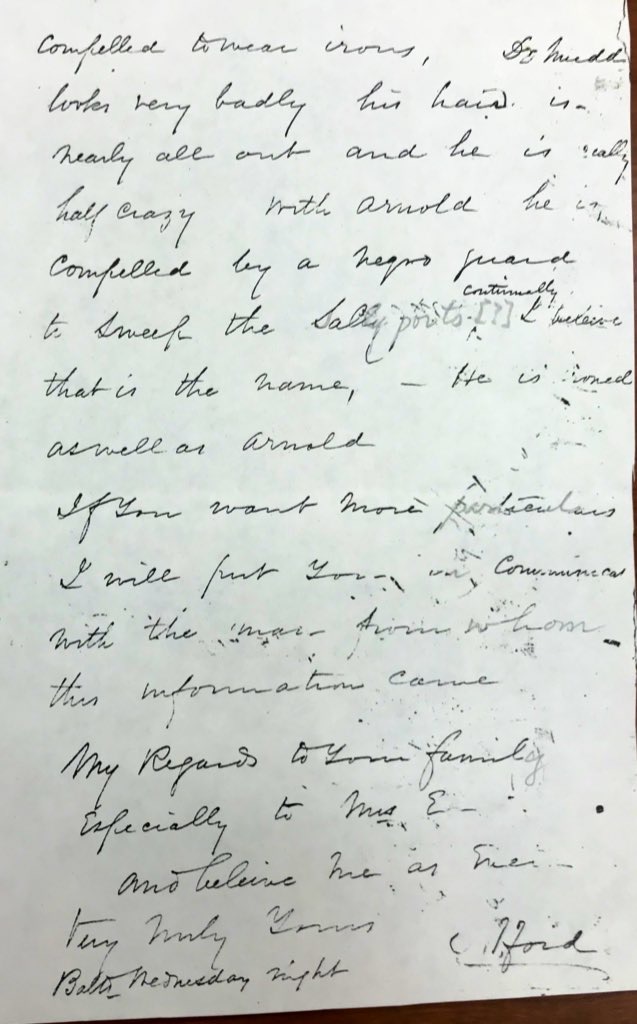 compelled to wear irons, Dr Mudd
looks very badly his hair is
nearly all out and he is really
half crazy with Arnold he is
compelled by a negro guard
continually
to sweep the Sally ports [?] I beleive
that is the name, - He is ironed
as well as Arnold
If You want more particulars
I will put You in
with the man from whom
this information came
My Regards to Your family
Especially to Mrs E-
and beleive me as Ever -
Very Truly Yours
Ford
Balto Wednesday night